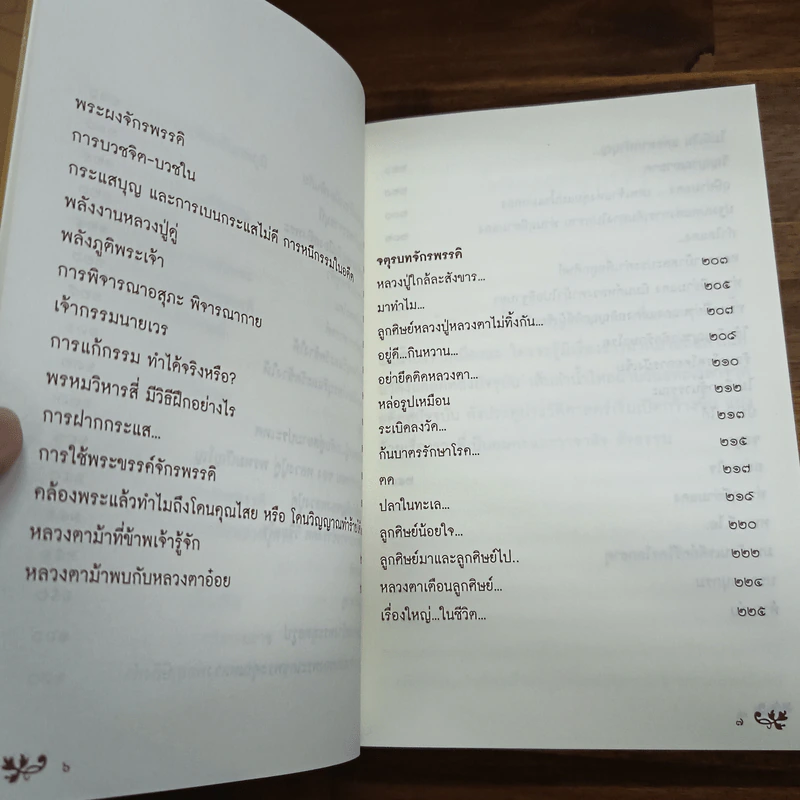 พระผงจักรพรรดิ
การบวชจิต-บวชใน
กระแสบุญ และการเบนกระแสไม่ดี การหนีกรรมในอดีต
พลังงานหลวงปู่ดู่
พลังภูติพระเจ้า
การพิจารณาอสุภะ พิจารณากาย
เจ้ากรรมนายเวร
การแก้กรรม ทำได้จริงหรือ?
พรหมวิหารสี่ มีวิธีฝึกอย่างไร
การฝากกระแส...
การใช้พระขรรค์จักรพรรดิ
คล้องพระแล้วทำไมถึงโดนคุณไสย หรือ โดนวิญญาณทำร้าย
หลวงตาม้าที่ข้าพเจ้ารู้จัก
หลวงตาม้าพบกับหลวงตาอ๋อย
๖
จตุรบทจักรพรรดิ
หลวงปู่ใกล้ละสังขาร... ๒๐๓
มาทำไม... ๒๐๕
ลูกศิษย์หลวงปู่หลวงตาไม่ทิ้งกัน... ๒๐๗
อยู่ดี...กินหวาน... ๒๐๙
อย่ายึดติดหลวงตา... ๒๑๐
หล่อรูปเหมือน ๒๑๒
ระเบิดลงวัด... ๒๑๓
ก้นบาตรรักษาโรค... ๒๑๕
คด ๒๑๗
ปลาในทะเล... ๒๑๙
ลูกศิษย์น้อยใจ... ๒๒๐
ลูกศิษย์มาและลูกศิษย์ไป.. ๒๒๒
หลวงตาเตือนลูกศิษย์... ๒๒๔
เรื่องใหญ่...ในชีวิต... ๒๒๕
๗